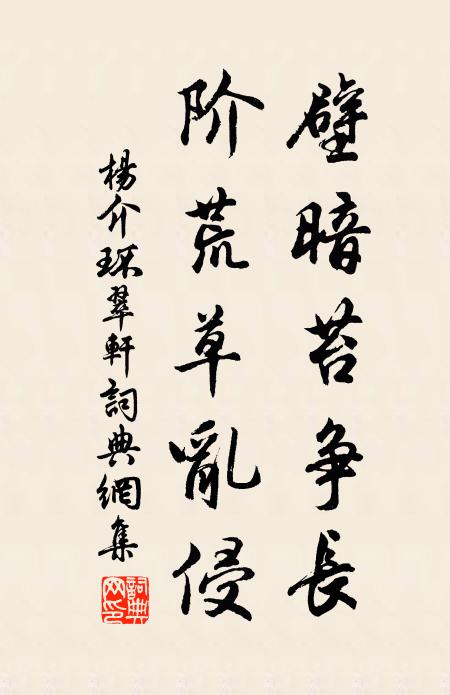 壁暗苔争長
阶荒草亂侵
楊介环翠軒詞典網集
詞典网印